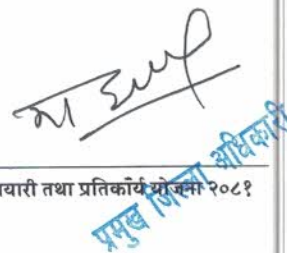 यारी तथा प्रतिकार्य योजना २०८१
प्रमुख जिल्ला अधिकारी